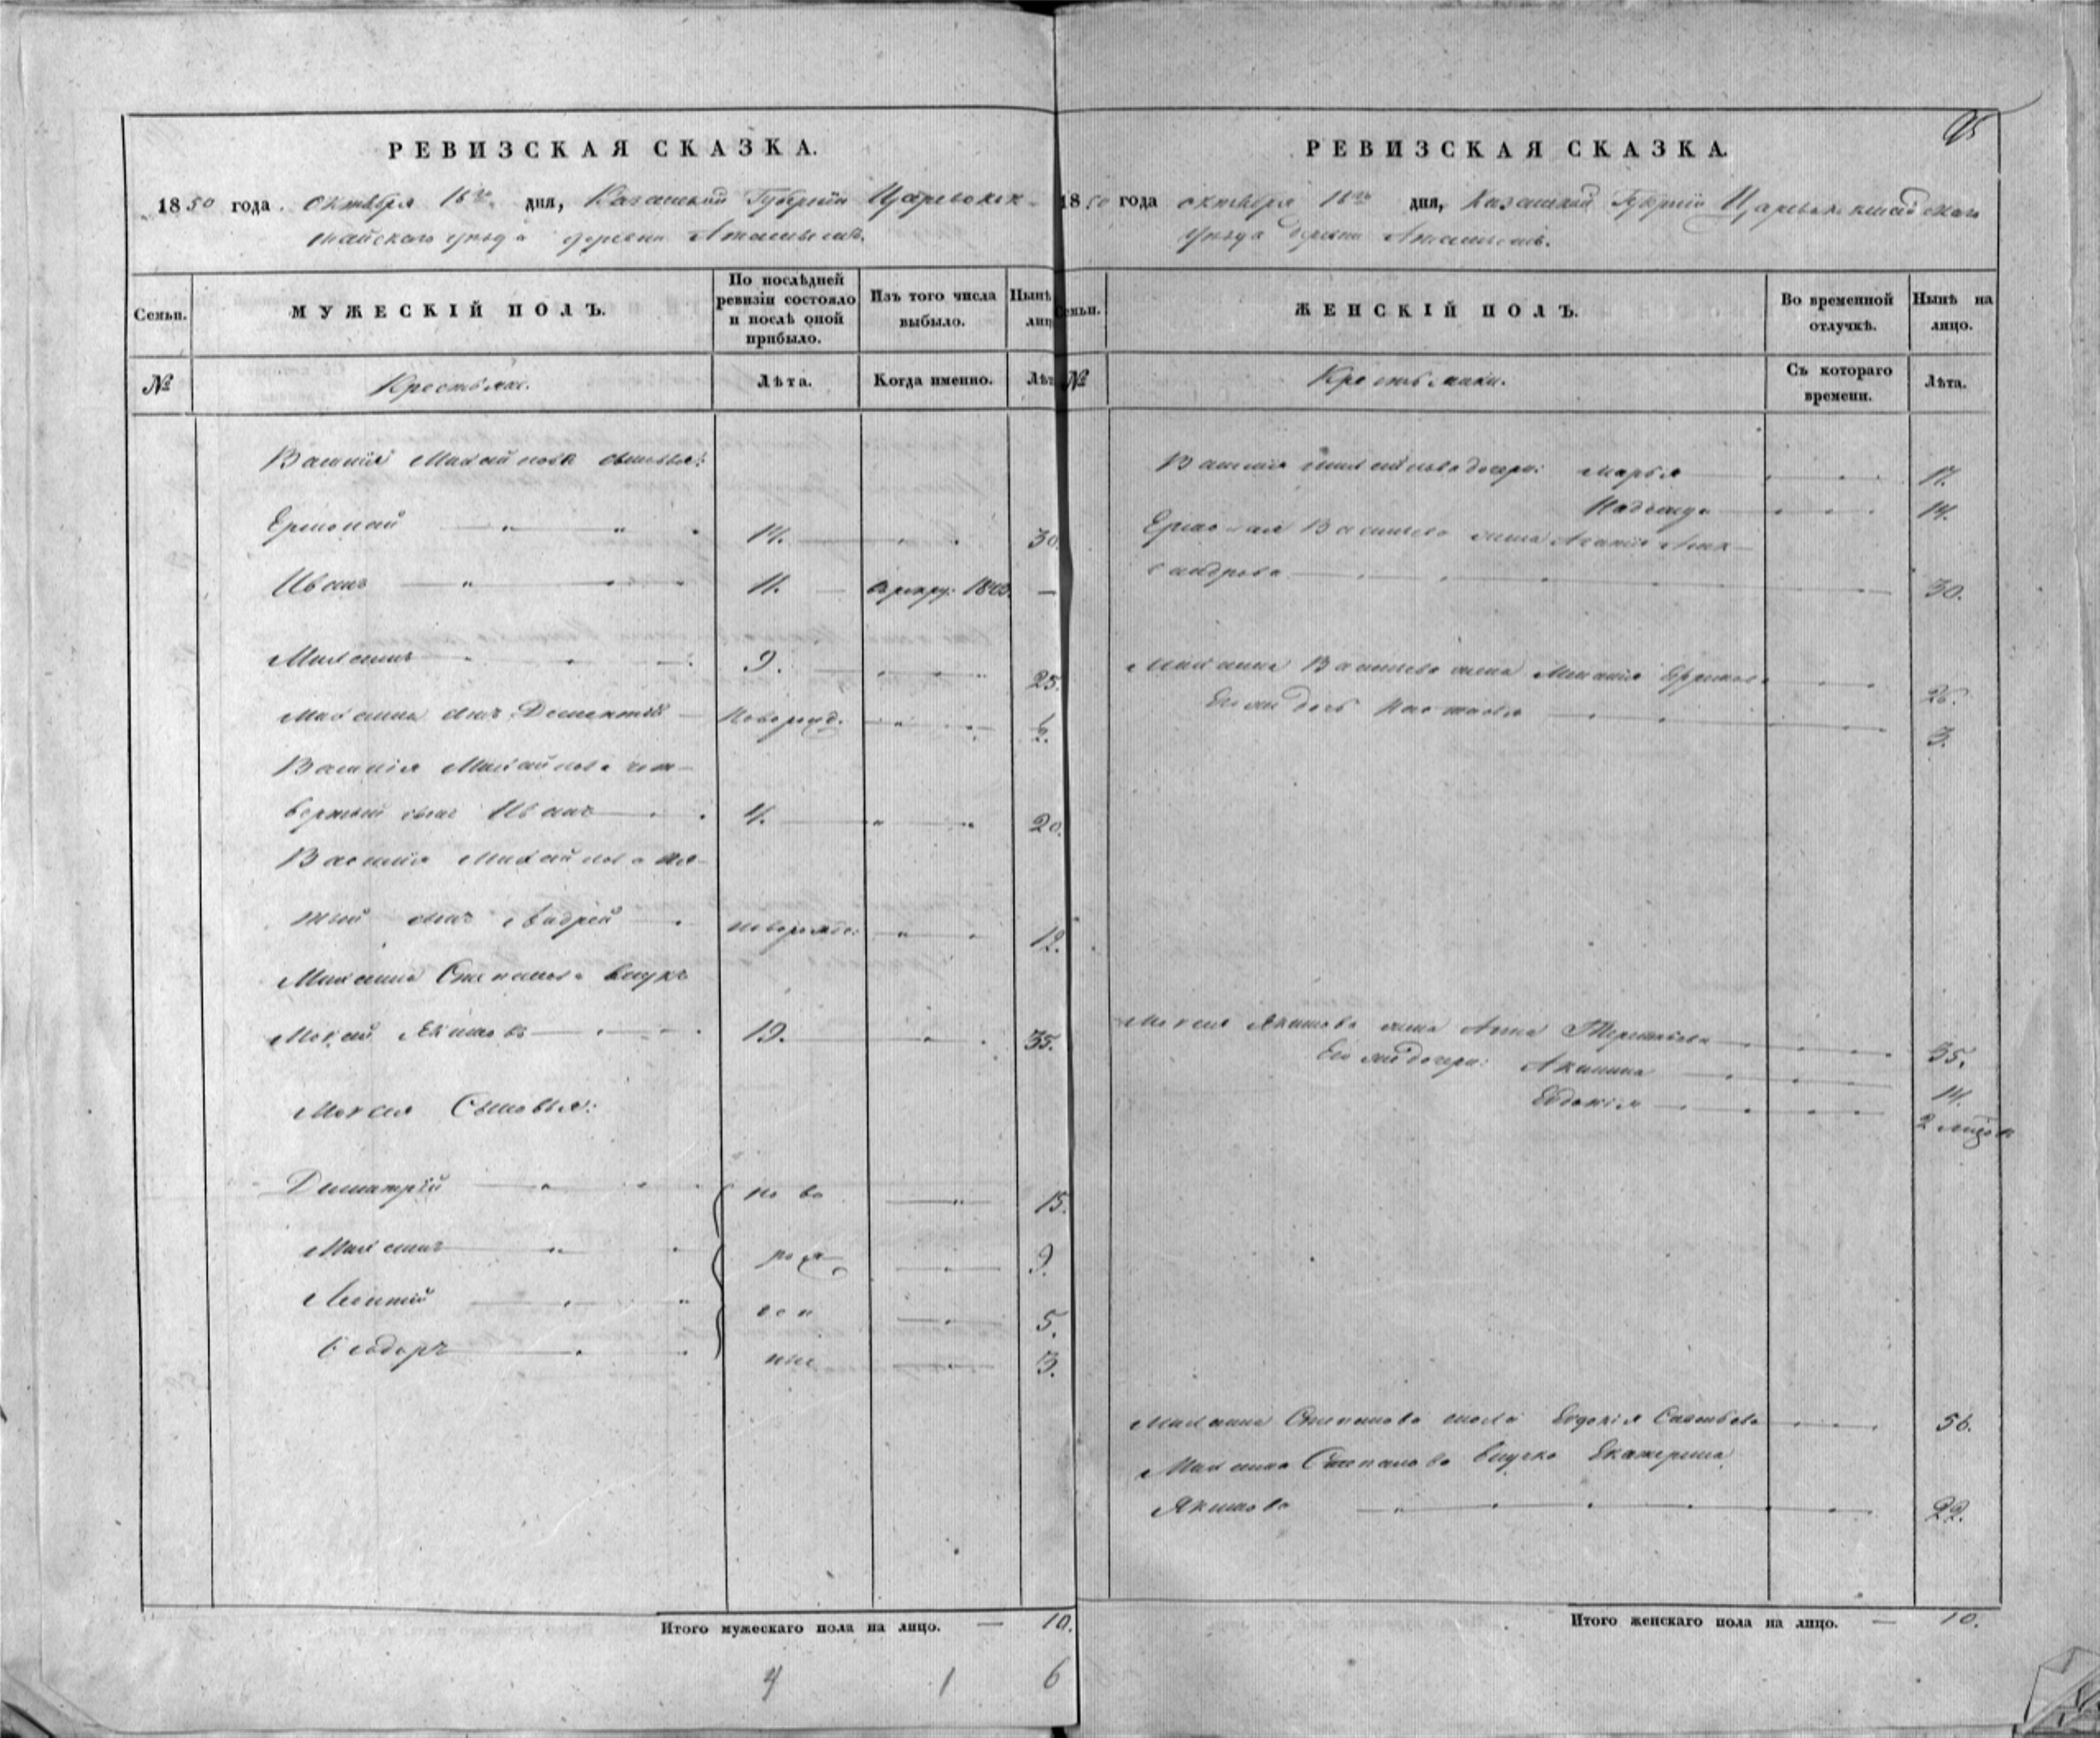 РЕВИЗСКАЯ СКАЗКА.
1850 года октября 16го дня, Казанской Губернии Царевокок-
шайскаго уезда деревни
Семьи.
МУЖЕСКІЙ ПОЛЪ.
По послѣдней ревизіи состояло и послѣ оной прибыло.
Изъ того числа выбыло.
Нынѣ лиц
№
Крестьяне.
Лѣта.
Когда именно.
Лѣт
Василія Михайлова сыновья:
Ермолай 14. 30.
Иванъ 11. в рекру:
Максимъ 9. 25.
Максима сынъ новорожд. 1/2.
Василія Михайлова чет-
вертый сынъ Иванъ 4. 20.
Василія Михайлова пя-
тый сынъ Андрей новорожде: 12.
Максима Степанова внукъ
Мокей Якимовъ 19. 35.
Мокея Сыновья:
Димитрій ново 15.
Максимъ рож 9.
Леонтій ден 5.
Ѳедоръ ные 3.
Итого мужескаго пола на лицо. — 10.
4 1 6
95
РЕВИЗСКАЯ СКАЗКА.
1850 года октября 16го дня, Казанской Губерніи Царевококшайскаго
уезда деревни
Семьи.
ЖЕНСКІЙ ПОЛЪ.
Во временной отлучкѣ.
Нынѣ на лицо.
№
Крестьянки.
Съ котораго времени.
Лѣта.
Василія Михайлова дочери: Марья 17.
Надежда 14.
Ермолая Васильева жена Алек-
сандрова 30.
Максима Васильева жена 26.
Ихъ дочь Настасья 3.
Мокея Якимова жена Анна Терентьева 35.
Ево дочери: Акилина 14.
Евдокія 2 месяцов
Максима Степанова сноха Евдокія Савельева 56.
Максима Степанова внучка Екатерина
Якимова 22.
Итого женскаго пола на лицо. — 10.